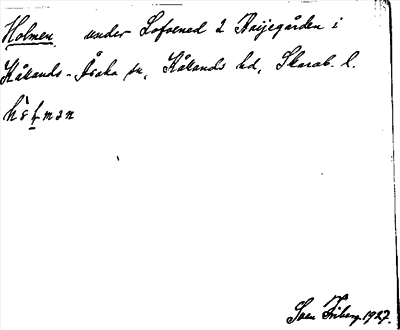 Holmen under Lofsened 2 Böijegården i
Kållands-Åsaka sn, Kållands hd, Skarab. l.
Sven Friberg 1927.